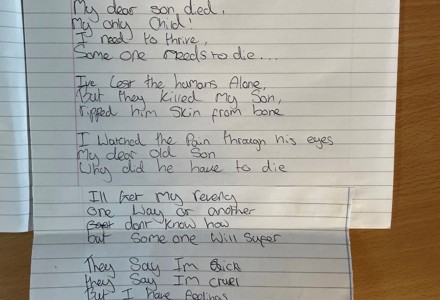 My dear son died,
My only Child!
I need to thrive,
Some one needs to die...
I've Left the humans Alone,
But they killed My Son,
ripped him Skin from bone
I Watched the Pain through his eyes
My dear old Son
Why did he have to die
Ill Get My Reveng
One Way or another
dont know how
but Some one Will Super
They Say Im Sick
they Say Im Cruel
But I Have feelings